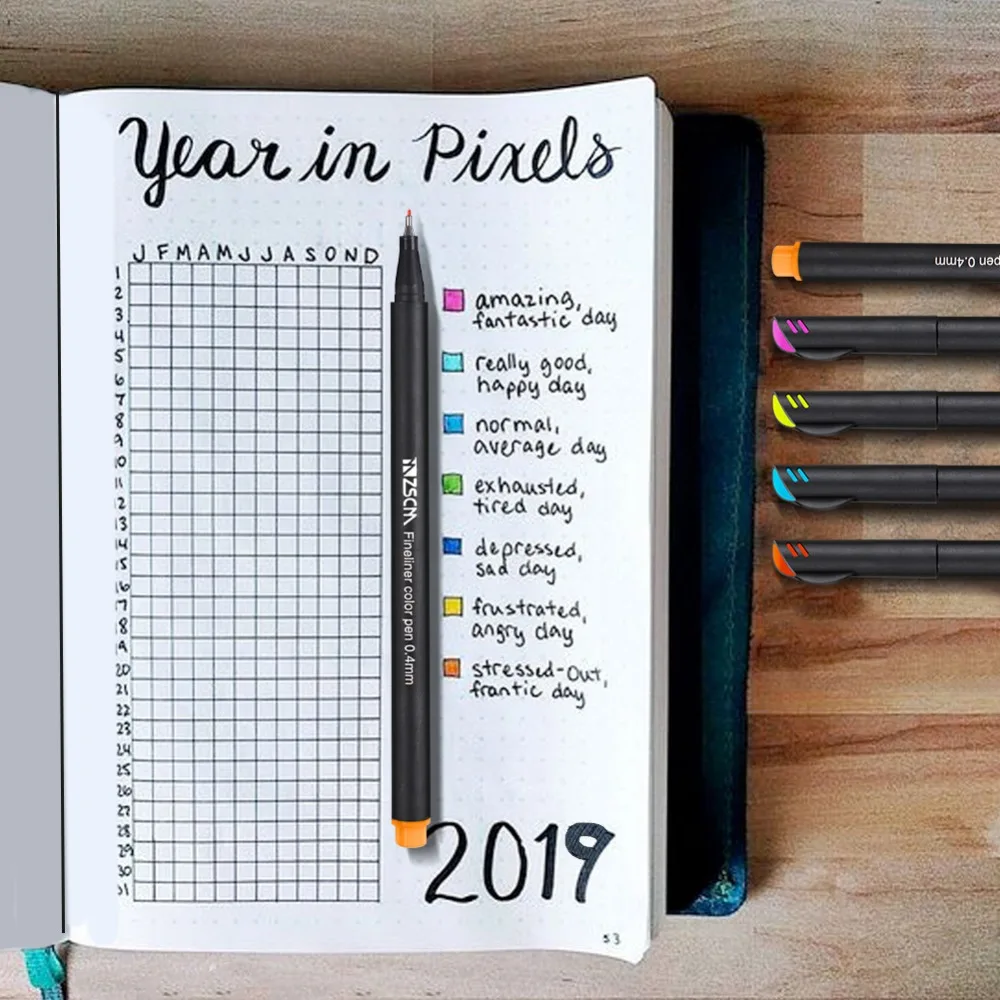 Year in Pixels
J F M A M J J A S O N D
1
2
3
4
5
6
7
8
9
10
11
12
13
14
15
16
17
18
19
20
21
22
23
24
25
26
27
28
29
30
31
amazing,
fantastic day
really good,
happy day
normal,
average day
exhausted,
tired day
depressed,
sad day
frustrated,
angry day
stressed-out,
frantic day
ZSCM Fineliner color pen 0.4mm
2019
53
pen 0.4mm